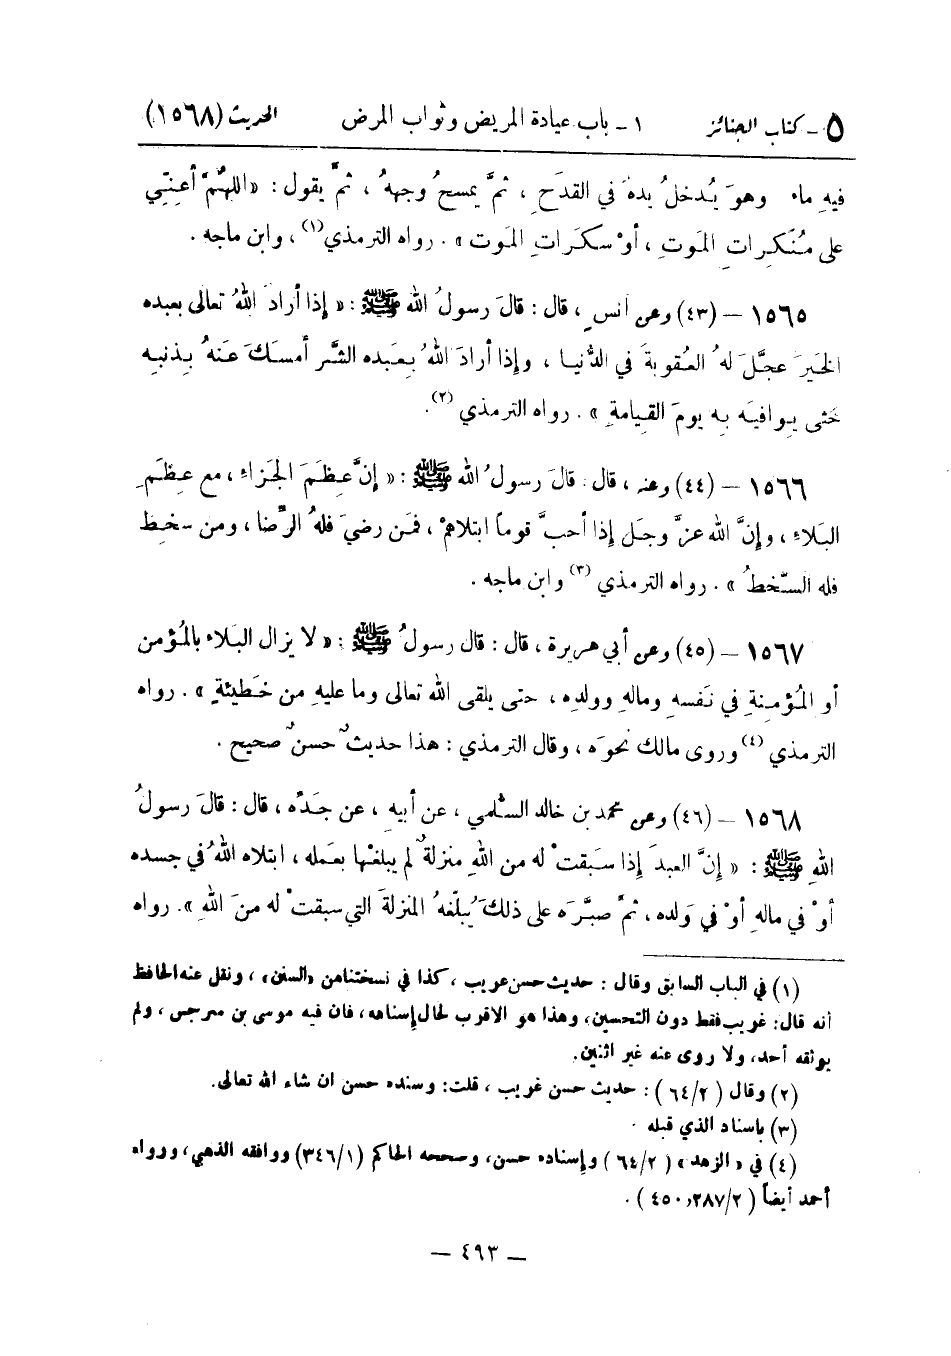 ٥ - كتاب الجنائز ١ - باب عيادة المريض وثواب المرض الحديث (١٥٦٨)
فيهِ ماء وهوَ يُدخلُ يدهُ في القدَحِ ، ثمَّ يمسحُ وجههُ ، ثمَّ يقول : « اللهُمَّ أعِنّي
على مُنَكِراتِ الموتِ ، أوْ سكَراتِ الموت » . رواه الترمذي(١) ، وابن ماجه .
١٥٦٥ – (٤٣) وعن أنسٍ ، قال : قالَ رسولُ الله ﷺ : « إذا أرادَ اللهُ تعالى بعبده
الخيرَ عجَّلَ لهُ العقوبةَ في الدُّنيا ، وإذا أرادَ اللهُ بعَبده الشَّر أمسكَ عَنهُ بِذنبِه
حَتى يوافيَه بِه يومَ القيامةِ » . رواه الترمذي (٢).
١٥٦٦ – (٤٤) وعنه ، قال : قالَ رسولُ الله ﷺ : « إنَّ عِظَمَ الجَزاءِ ، مع عِظَمِ
البَلاءِ ، وإنَّ الله عزَّ وجَل إذا أحبَّ قوماً ابتلاهمْ ، فمَن رضيَ فلهُ الرِّضا ، ومن سخِط
فله السّخطُ » . رواه الترمذي (٣) وابن ماجه .
١٥٦٧ – (٤٥) وعن أبي هريرة ، قال : قال رسولُ ﷺ : « لا يزال البَلاء بالمُؤمن
أو المُؤمِنةِ في نَفسهِ ومالهِ وولدِه ، حتى يلقى الله تعالى وما عليهِ من خَطيئةٍ » . رواه
الترمذي (٤) وروى مالك نحوَه ، وقال الترمذي : هذا حديثٌ حسنٌ صحيح .
١٥٦٨ – (٤٦) وعن محمد بن خالد السُّلمي ، عن أبيهِ ، عن جدِّه ، قال : قالَ رسولُ
اللهِ ﷺ : « إنَّ العبدَ إذا سبَقتْ له من اللهِ منزلةٌ لم يبلغْها بعَمله ، ابتلاه اللهُ في جسده
أوْ في ماله أوْ في وَلده ، ثمَّ صبَّرَه على ذلكَ يُبلّغهُ المنزلةَ التي سبقتْ له منَ اللهِ ». رواه
(١) في الباب السابق وقال : حديث حسن غريب ، كذا في نسختنا من «السنن» ، ونقل عنه الحافظ
أنه قال: غريب فقط دون التحسين، وهذا هو الاقرب لحال إسناده، فان فيه موسى بن سرجس ، ولم
يوثقه أحد، ولا روى عنه غير اثنين.
(٢) وقال (٦٤/٢) : حديث حسن غريب ، قلت: وسنده حسن ان شاء الله تعالى.
(٣) باسناد الذي قبله .
(٤) في « الزهد » (٦٤/٢) وإسناده حسن، وصححه الحاكم (٣٤٦/١) ووافقه الذهبي، ورواه
أحمد أيضاً (٢٨٧/٢، ٤٥٠) .
— ٤٩٣ —